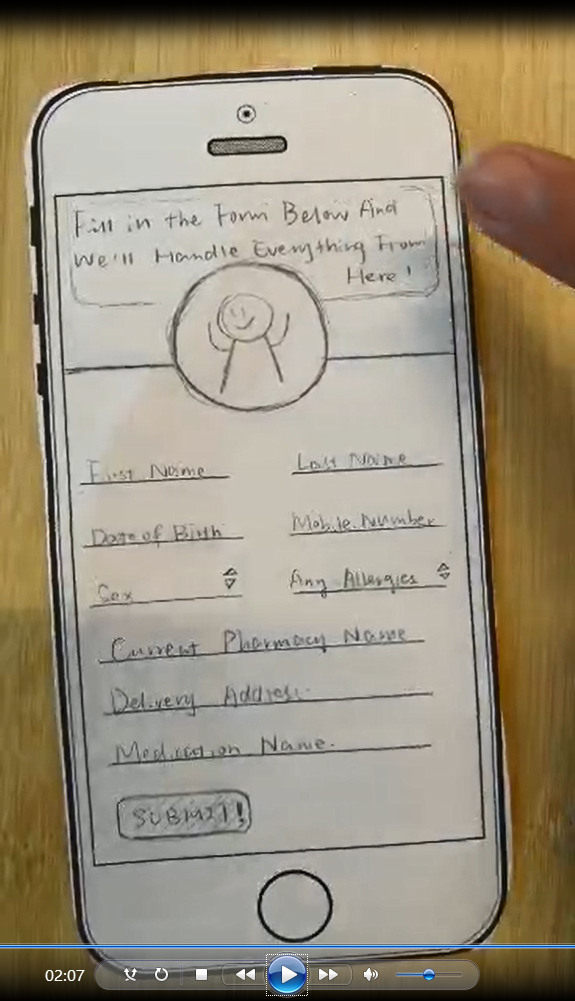 Fill in the Form Below And
We'll Handle Everything From
Here!
First Name
Last Name
Date of Birth
Mobile Number
Sex
Any Allergies
Current Pharmacy Name
Delivery Address
Medication Name
SUBMIT!
02:07